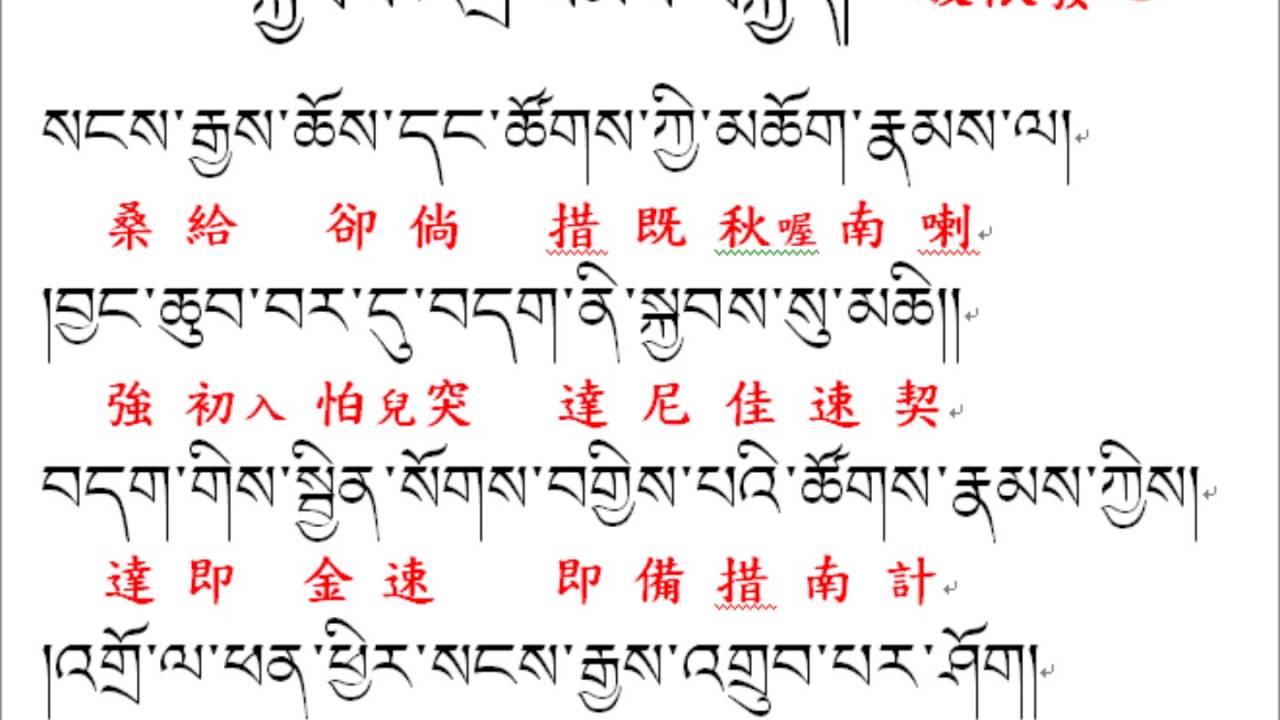 སངས་རྒྱས་ཆོས་དང་ཚོགས་ཀྱི་མཆོག་རྣམས་ལ།
桑 給 卻 倘 措 既 秋喔 南 喇
།བྱང་ཆུབ་བར་དུ་བདག་ནི་སྐྱབས་སུ་མཆི།།
強 初入 怕兒突 達 尼 佳 速 契
བདག་གིས་སྦྱིན་སོགས་བགྱིས་པའི་ཚོགས་རྣམས་ཀྱིས།
達 即 金 速 即 備 措 南 計
།འགྲོ་ལ་ཕན་ཕྱིར་སངས་རྒྱས་འགྲུབ་པར་ཤོག།